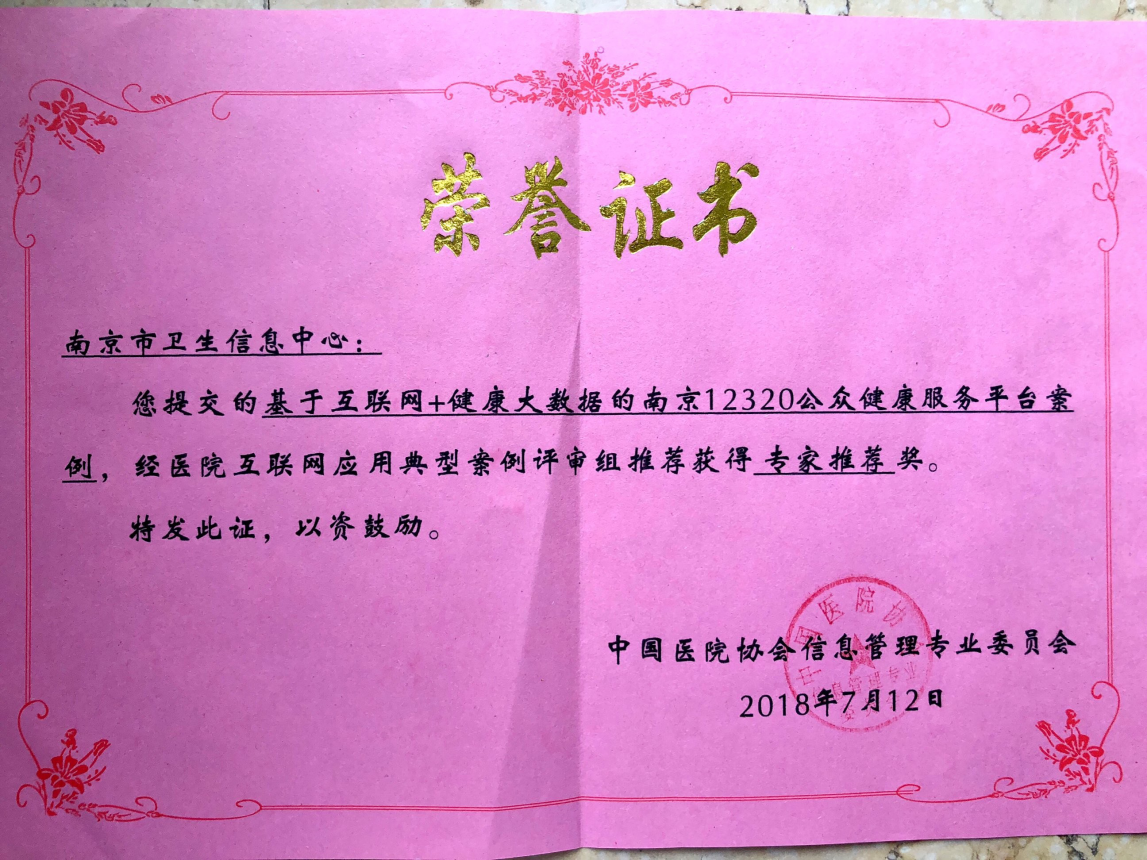 荣誉证书
南京市卫生信息中心：
您提交的基于互联网+健康大数据的南京12320公众健康服务平台案
例，经医院互联网应用典型案例评审组推荐获得专家推荐奖。
特发此证，以资鼓励。
中国医院协
中国医院协会信息管理专业委员会
2018年7月12日